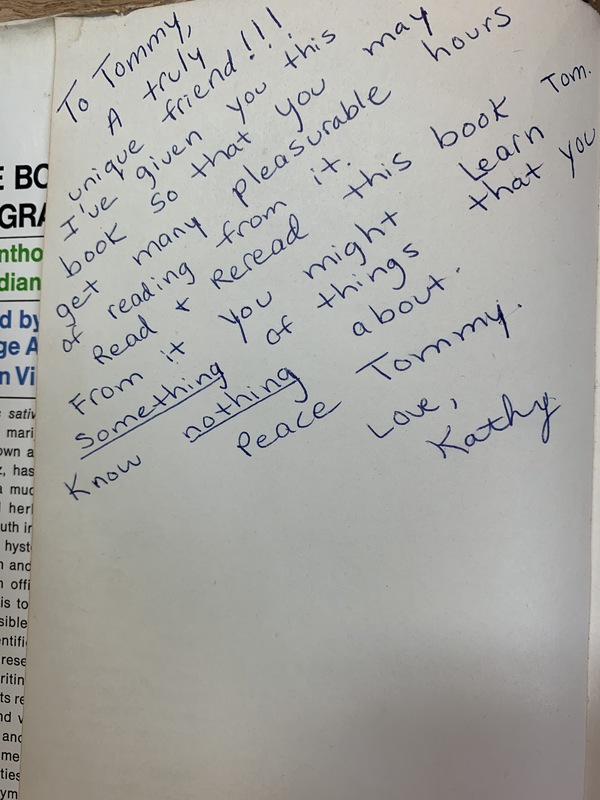 To Tommy,
A truly
unique friend!!!
I've given you this
book so that you may
get many pleasurable hours
of reading from it.
Read + Reread this book Tom.
From it you might Learn
something of things that you
Know nothing about.
Peace Tommy.
Love,
Kathy
E BO
GRA
ntho
dian
d by
ge A
n Vi
sativ
mari
own a
, has
a muc
herl
uth in
hyst
and
offi
is to
sible
entifi
rese
ritin
ts re
nd v
and
me
ties
ym